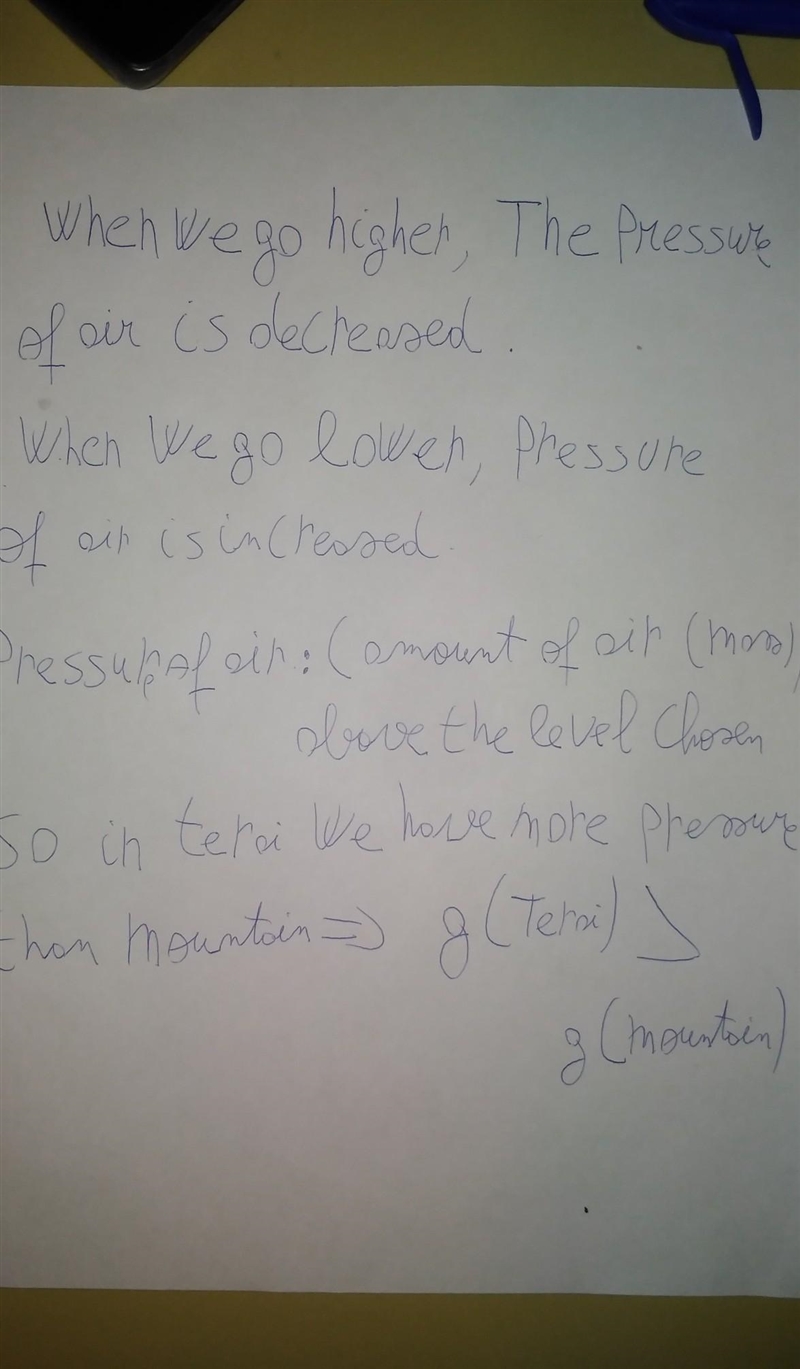 When we go higher, The Pressure
of air is decreased.
When we go lower, Pressure
of air is increased.
Pressure of air: (amount of air (mass)
above the level chosen
So in terai we have more pressure
than mountain => g(Terai) >
g(mountain)